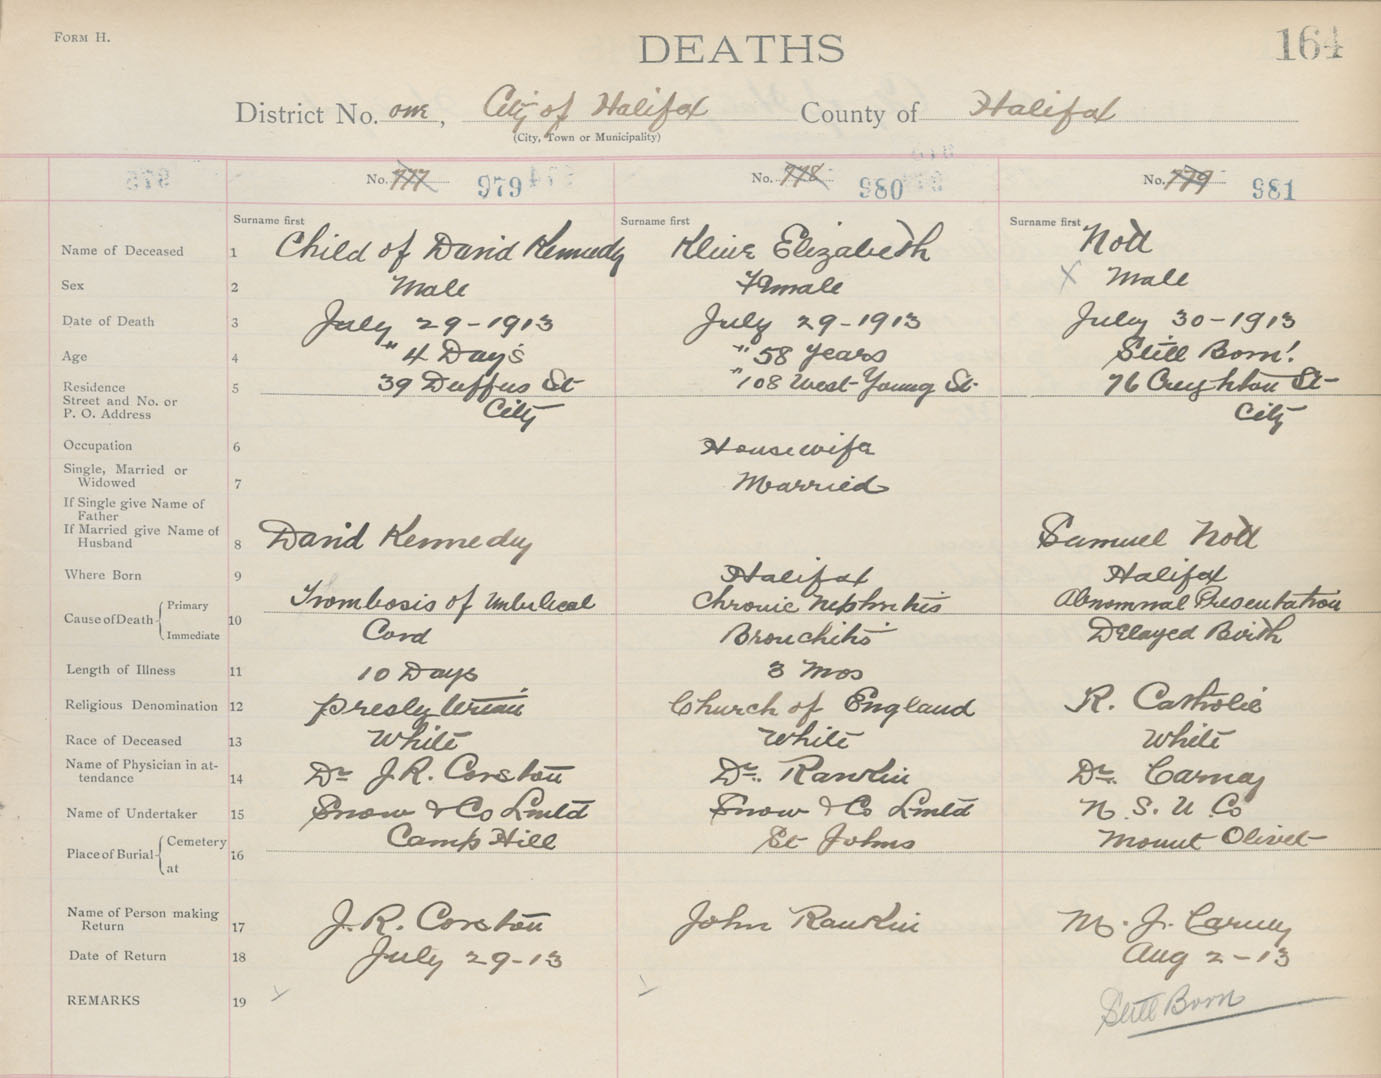 FORM H.
DEATHS
164
District No. one, City of Halifax County of Halifax
(City, Town or Municipality)
No. 777 979
No. 778 980
No. 779 981
Surname first Surname first Surname first
Name of Deceased 1 Child of David Kennedy Kline Elizabeth Nott
Sex 2 Male Female X Male
Date of Death 3 July 29-1913 July 29-1913 July 30-1913
Age 4 " 4 Day's " 58 years Still Born!
Residence
Street and No. or
P. O. Address
5 39 Duffus St " 108 West-Young St. 76 Creighton St-
City City
Occupation 6 Housewife
Single, Married or
Widowed 7 Married
If Single give Name of
Father
If Married give Name of
Husband 8 David Kennedy Samuel Nott
Where Born 9 Halifax Halifax
Cause of Death Primary 10 Trombosis of Umbelical Chronic Nephritis Abnomnal Presentation
Immediate Cord Bronchitis Delayed Birth
Length of Illness 11 10 Days 3 Mos
Religious Denomination 12 Presbyterian Church of England R. Catholic
Race of Deceased 13 White White White
Name of Physician in at-
tendance 14 Dr J.R. Corston Dr. Rankin Dr. Carney
Name of Undertaker 15 Snow & Co Lmtd Snow & Co Lmtd N. S. U. Co
Place of Burial Cemetery 16 Camp Hill St Johns Mount Olivet
at
Name of Person making
Return 17 J. R. Corston John Rankin M. J. Carney
Date of Return 18 July 29-13 Aug 2-13
REMARKS 19 Still Born